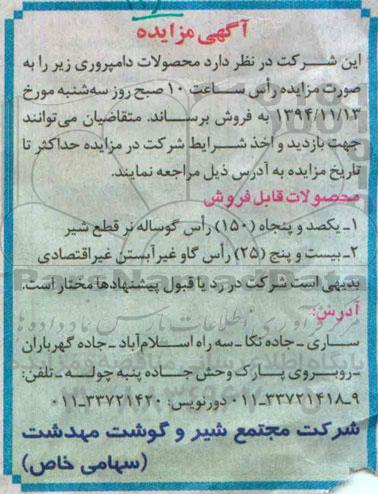 آگهی مزایده
این شرکت در نظر دارد محصولات دامپروری زیر را به
صورت مزایده رأس ساعت ۱۰ صبح روز سه‌شنبه مورخ
۱۳۹۴/۱۱/۱۳ به فروش برساند. متقاضیان می‌توانند
جهت بازدید و اخذ شرایط شرکت در مزایده حداکثر تا
تاریخ مزایده به آدرس ذیل مراجعه نمایند.
محصولات قابل فروش
۱ـ یکصد و پنجاه (۱۵۰) رأس گوساله نر قطع شیر
۲ـ بیست و پنج (۲۵) رأس گاو غیرآبستن غیراقتصادی
بدیهی است شرکت در رد یا قبول پیشنهادها مختار است.
آدرس:
ساری ـ جاده نکا ـ سه راه اسلام‌آباد ـ جاده گهرباران
ـ روبروی پارک وحش جاده پنبه چوله ـ تلفن:
۹ـ۳۳۷۲۱۴۱۸ـ۰۱۱ دورنویس: ۳۳۷۲۱۴۲۰ـ۰۱۱
شرکت مجتمع شیر و گوشت مهدشت
(سهامی خاص)